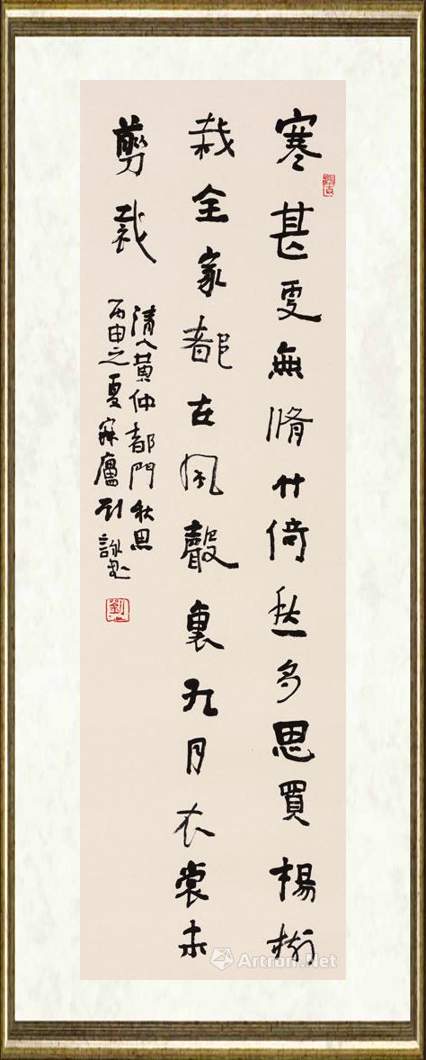 寒甚更無脩竹倚愁多思買楊樹
栽全家都在風聲裏九月衣裳未
剪裁
清人黃仲都門秋思
丙申之夏寐廬刘詠書
Artron.Net